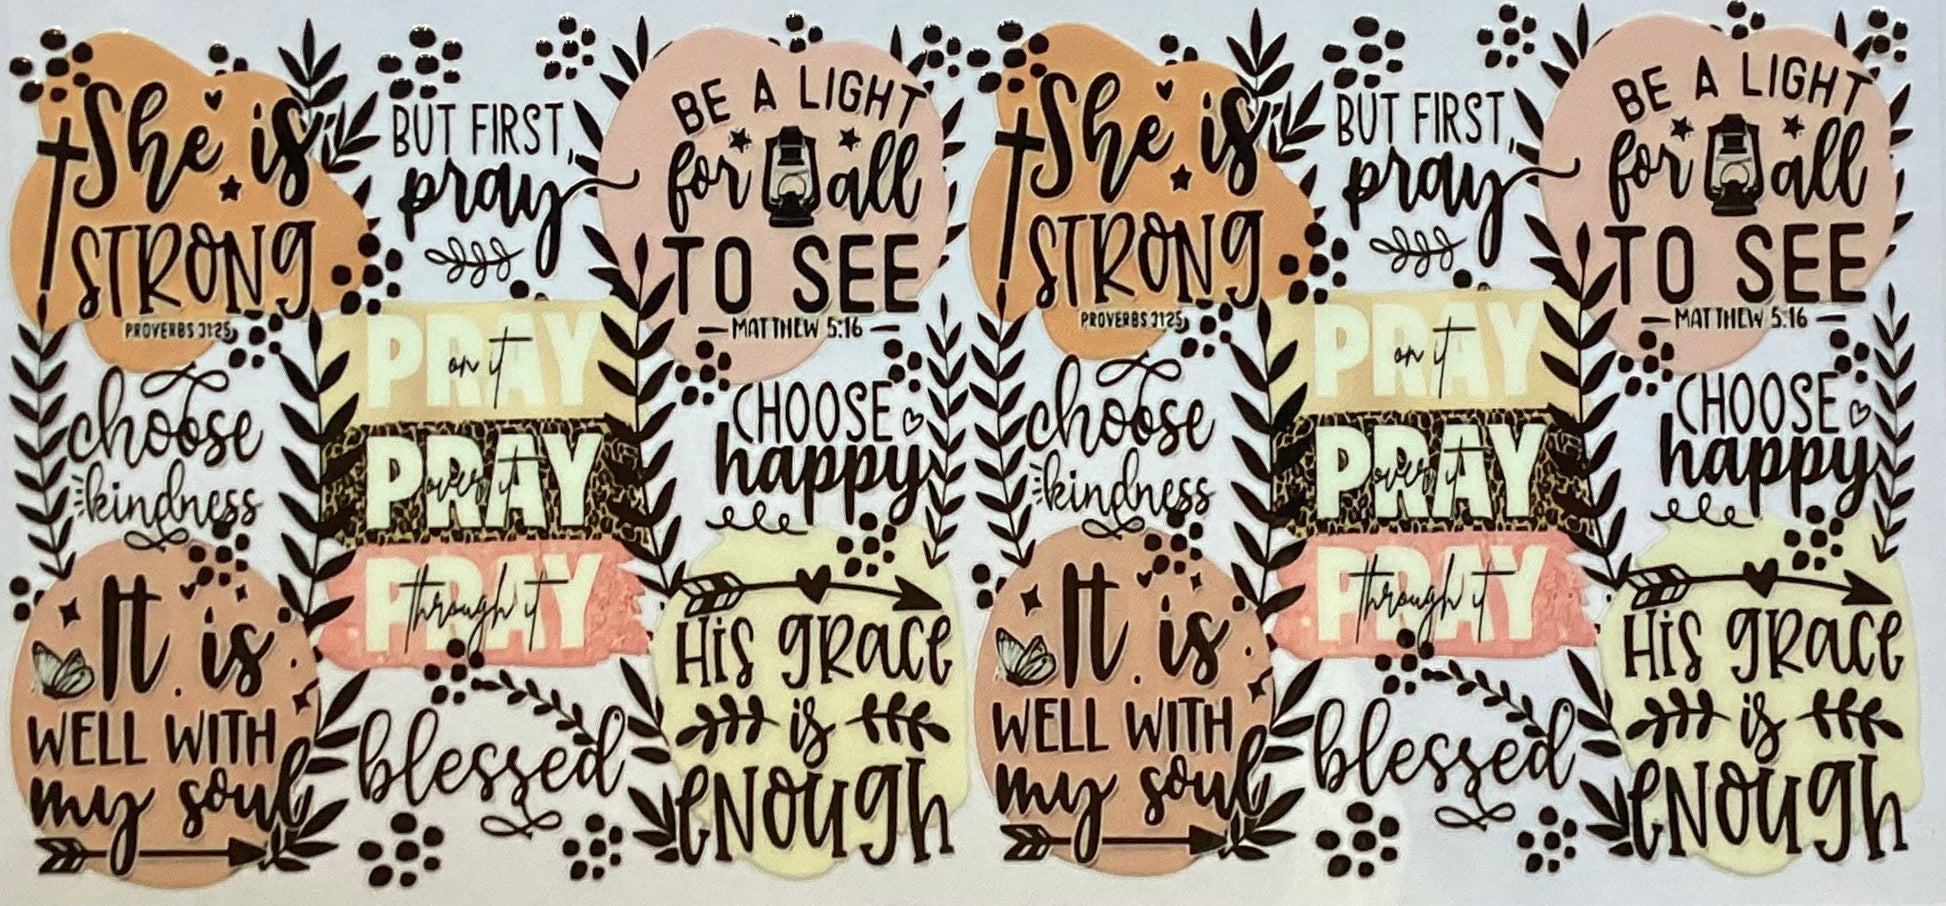 She is
STRONG
PROVERBS 31:25
BUT FIRST,
pray
BE A LIGHT
for all
TO SEE
MATTHEW 5:16
choose
kindness
PRAY
on it
PRAY
over it
PRAY
through it
CHOOSE
happy
It is
WELL WITH
my soul
blessed
HIS GRACE
is
ENOUGH
She is
STRONG
PROVERBS 31:25
BUT FIRST,
pray
BE A LIGHT
for all
TO SEE
MATTHEW 5:16
choose
kindness
PRAY
on it
PRAY
over it
PRAY
through it
CHOOSE
happy
It is
WELL WITH
my soul
blessed
HIS GRACE
is
ENOUGH